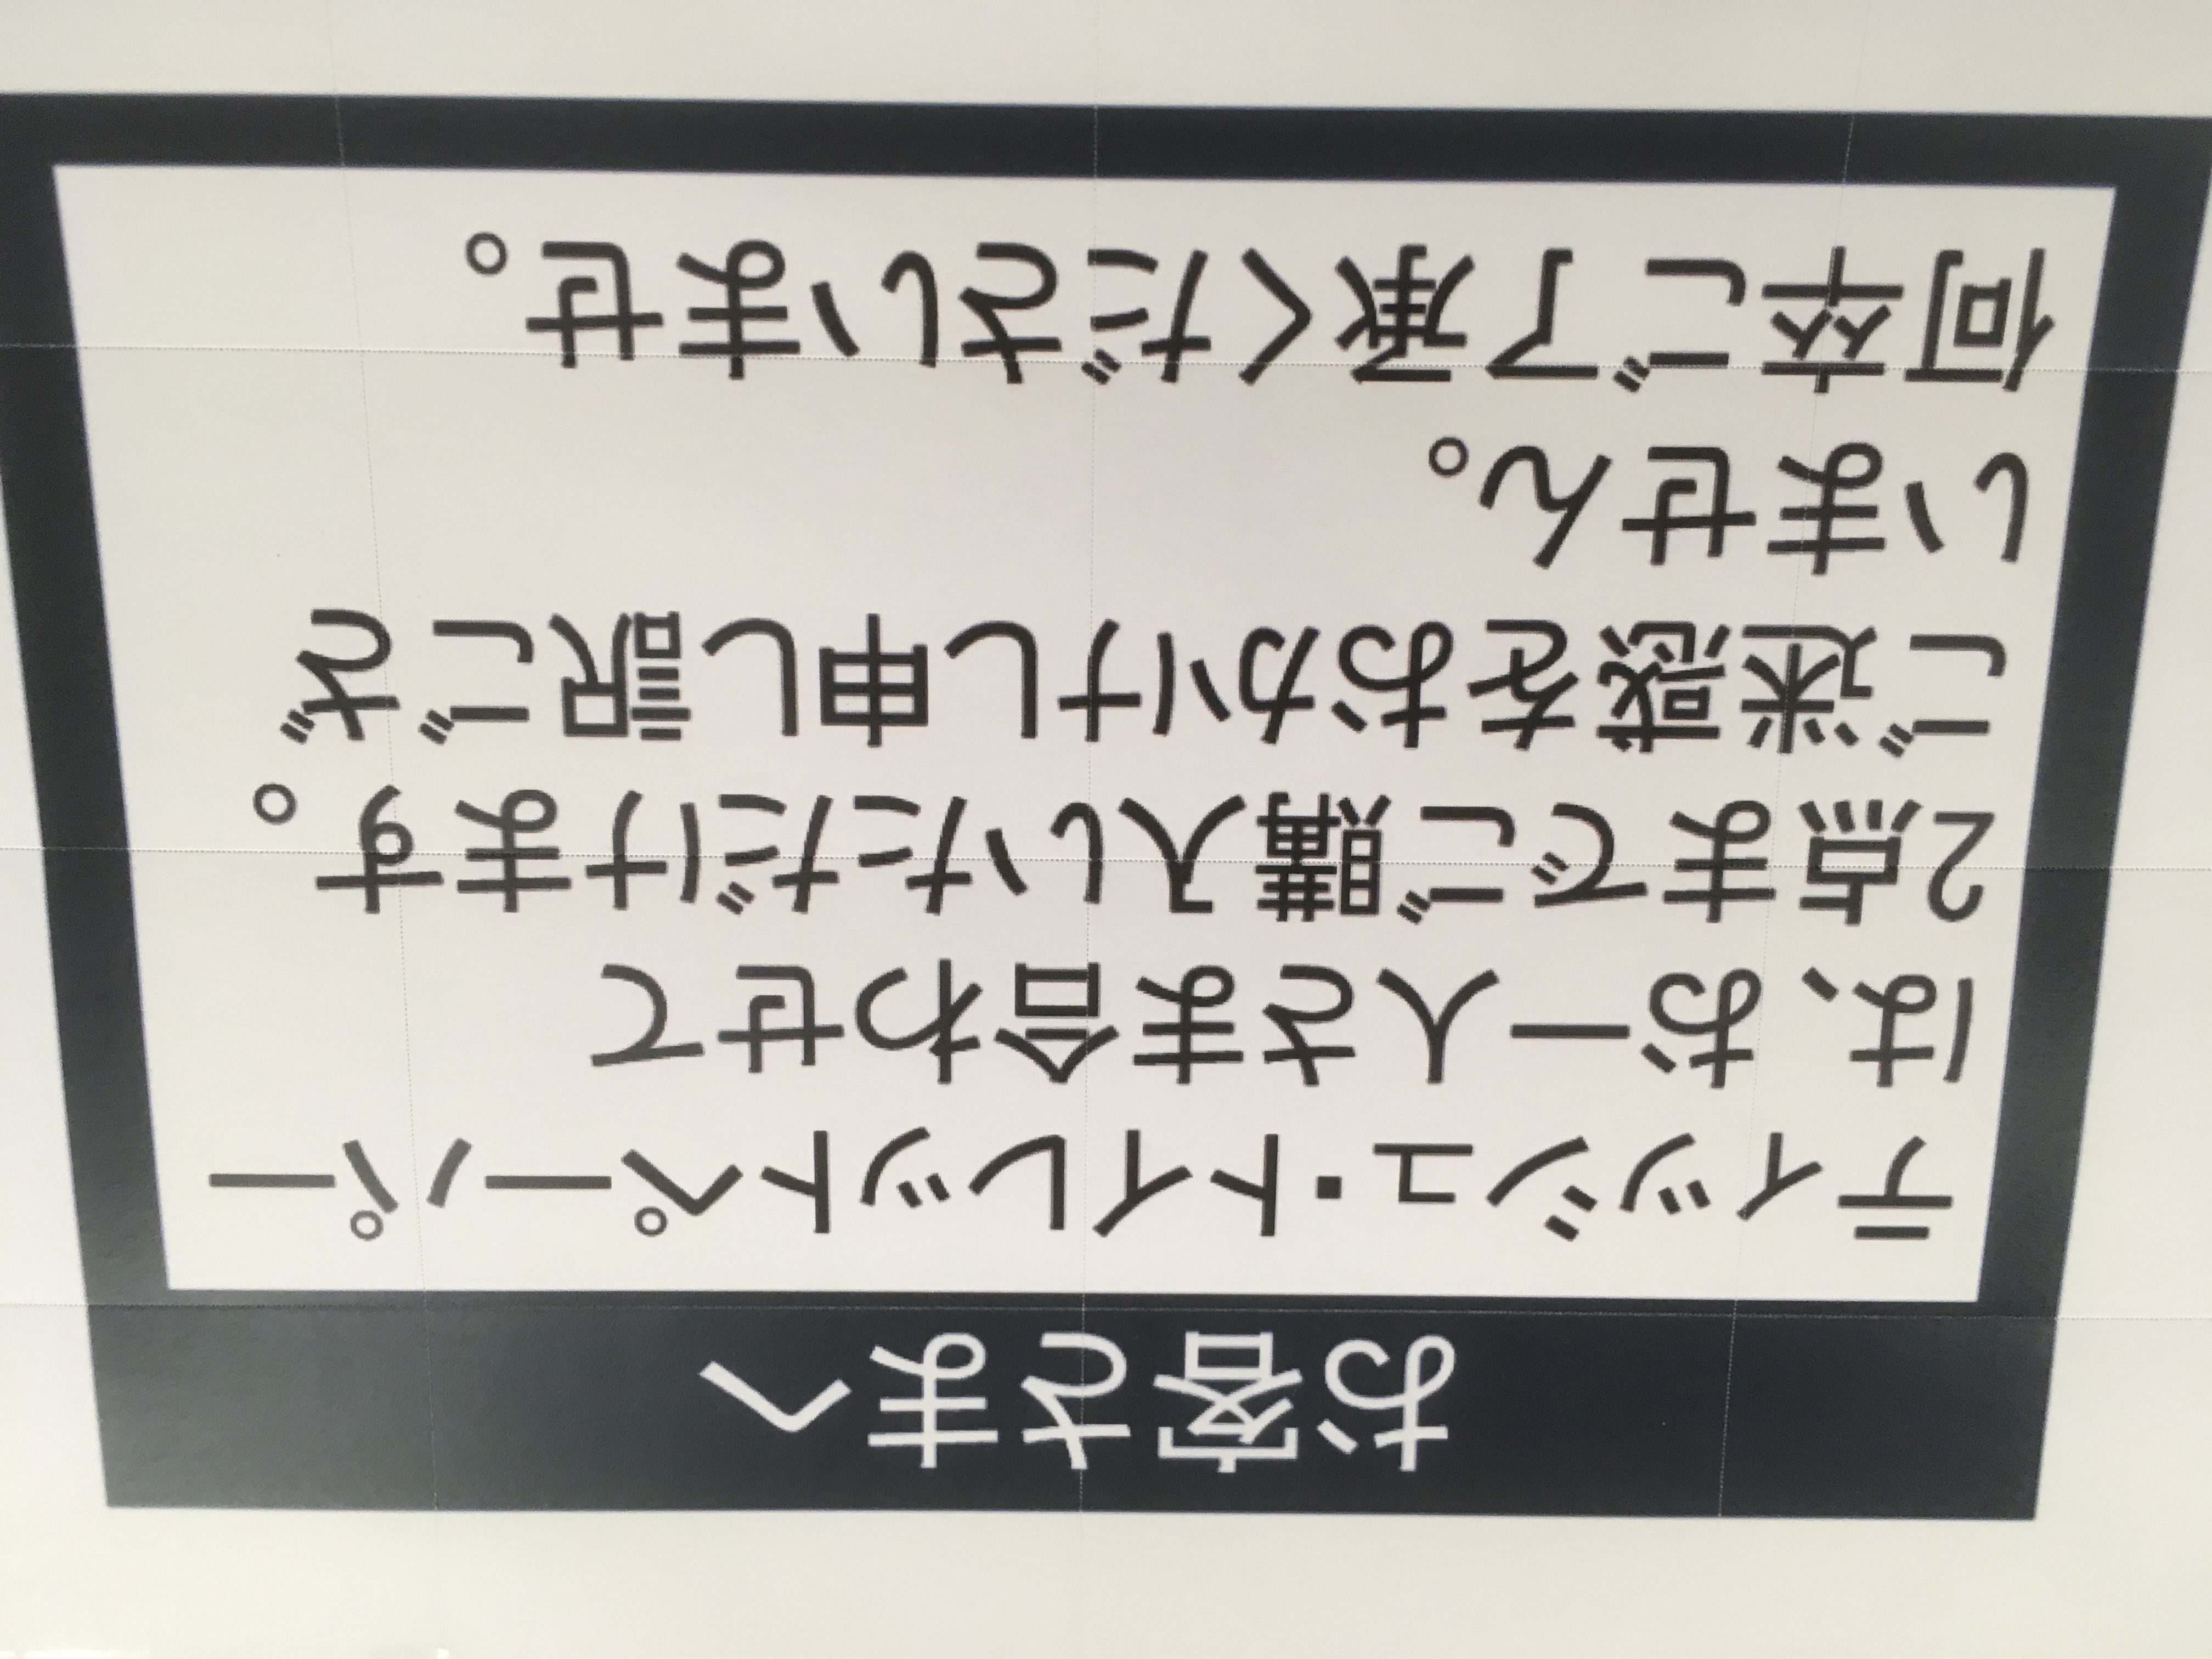 お客さまへ
ティッシュ・トイレットペーパー
は、お一人さま合わせて
2点までご購入いただけます。
ご迷惑をおかけし申し訳ござ
いません。
何卒ご了承くださいませ。